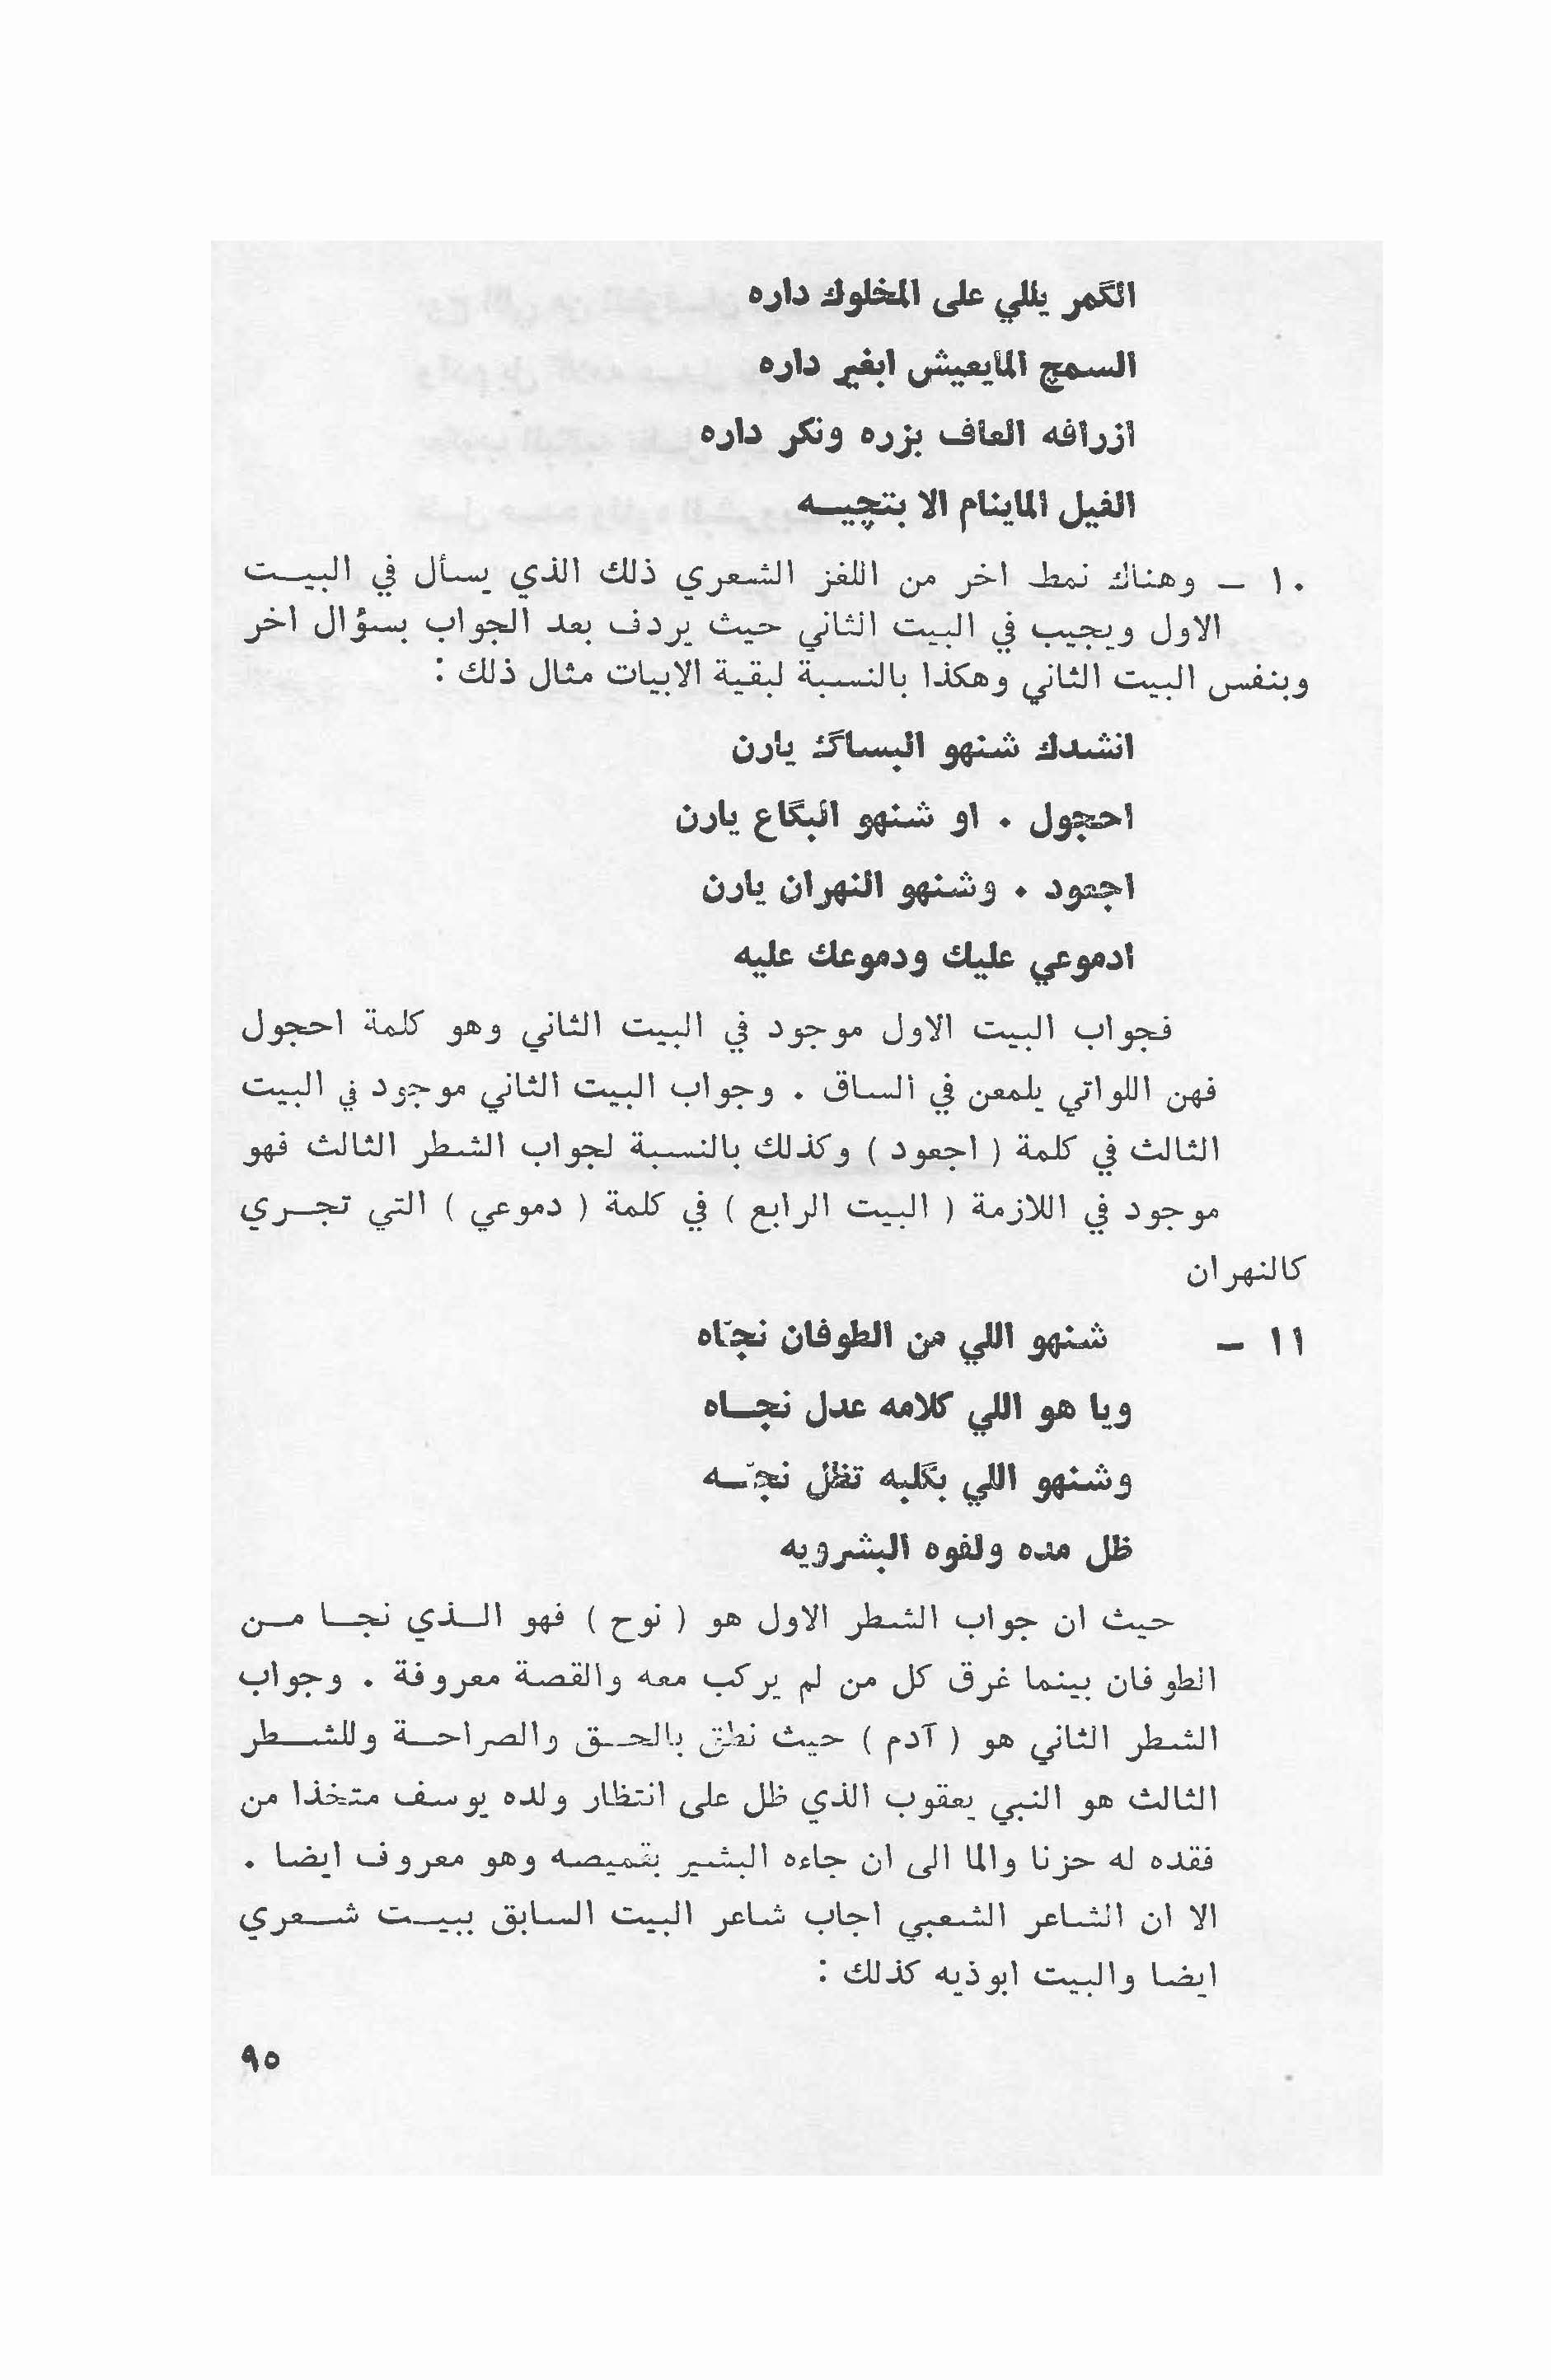 الگمر يللي على المخلوك داره
السمچ المايعيش ابغير داره
ازرافه العاف بزره ونكر داره
الفيل الماينام الا بتچيـــه
١٠ ـ وهناك نمط اخر من اللغز الشعري ذلك الذي يسأل في البيـــت
الاول ويجيب في البيت الثاني حيث يردف بعد الجواب بسؤال اخر
وبنفس البيت الثاني وهكذا بالنسبة لبقية الابيات مثال ذلك :
انشدك شنهو البساگ يارن
احجول . او شنهو البگاع يارن
اجعود . وشنهو النهران يارن
ادموعي عليك ودموعك عليه
فجواب البيت الاول موجود في البيت الثاني وهو كلمة احجول
فهن اللواتي يلمعن في الساق . وجواب البيت الثاني موجود في البيت
الثالث في كلمة ( اجعود ) وكذلك بالنسبة لجواب الشطر الثالث فهو
موجود في اللازمة ( البيت الرابع ) في كلمة ( دموعي ) التي تجـــري
كالنهران
١١ ـ شنهو اللي من الطوفان نجّاه
ويا هو اللي كلامه عدل نجـــاه
وشنهو اللي بگلبه تظل نجّـــه
ظل مده ولفوه البشرويه
حيث ان جواب الشطر الاول هو ( نوح ) فهو الـــذي نجـــا مـــن
الطوفان بينما غرق كل من لم يركب معه والقصة معروفة . وجواب
الشطر الثاني هو ( آدم ) حيث نطق بالحـــق والصراحـــة وللشـــطر
الثالث هو النبي يعقوب الذي ظل على انتظار ولده يوسف متخذا من
فقده له حزنا والما الى ان جاءه البشير بقميصه وهو معروف ايضا .
الا ان الشاعر الشعبي اجاب شاعر البيت السابق ببيـــت شـــعري
ايضا والبيت ابوذيه كذلك :
٩٥